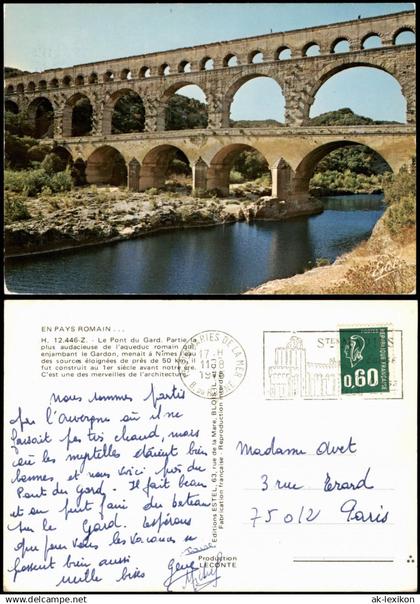 EN PAYS ROMAIN...
H. 12.446-Z. - Le Pont du Gard. Partie la
plus audacieuse de l'aqueduc romain qui
enjambant le Gardon, menait à Nîmes l'eau
des sources éloignées de près de 50 km, il
fut construit au 1er siècle avant notre ère.
C'est une des merveilles de l'architecture.
MARIES DE LA MER
17-H
RHONE
STES
POSTES
REPUBLIQUE FRANÇAISE
0,60
nous sommes partis
par l'Auvergne où il ne
faisait pas très chaud, mais
où les myrtilles étaient bien
bonnes, et nous voici près du
Pont du Gard. Il fait beau
et on peut faire du bateau
sur le Gard. Espérons
que pour vous les vacances se
passent bien aussi
mille bises
Editions ESTEL, 63, rue de la Mare, BLOIS
Fabrication française - Reproduction interdite
Production
LECONTE
Madame Avet
3 rue Erard
75012 Paris
ak-lexikon
© ak-lexikon.com